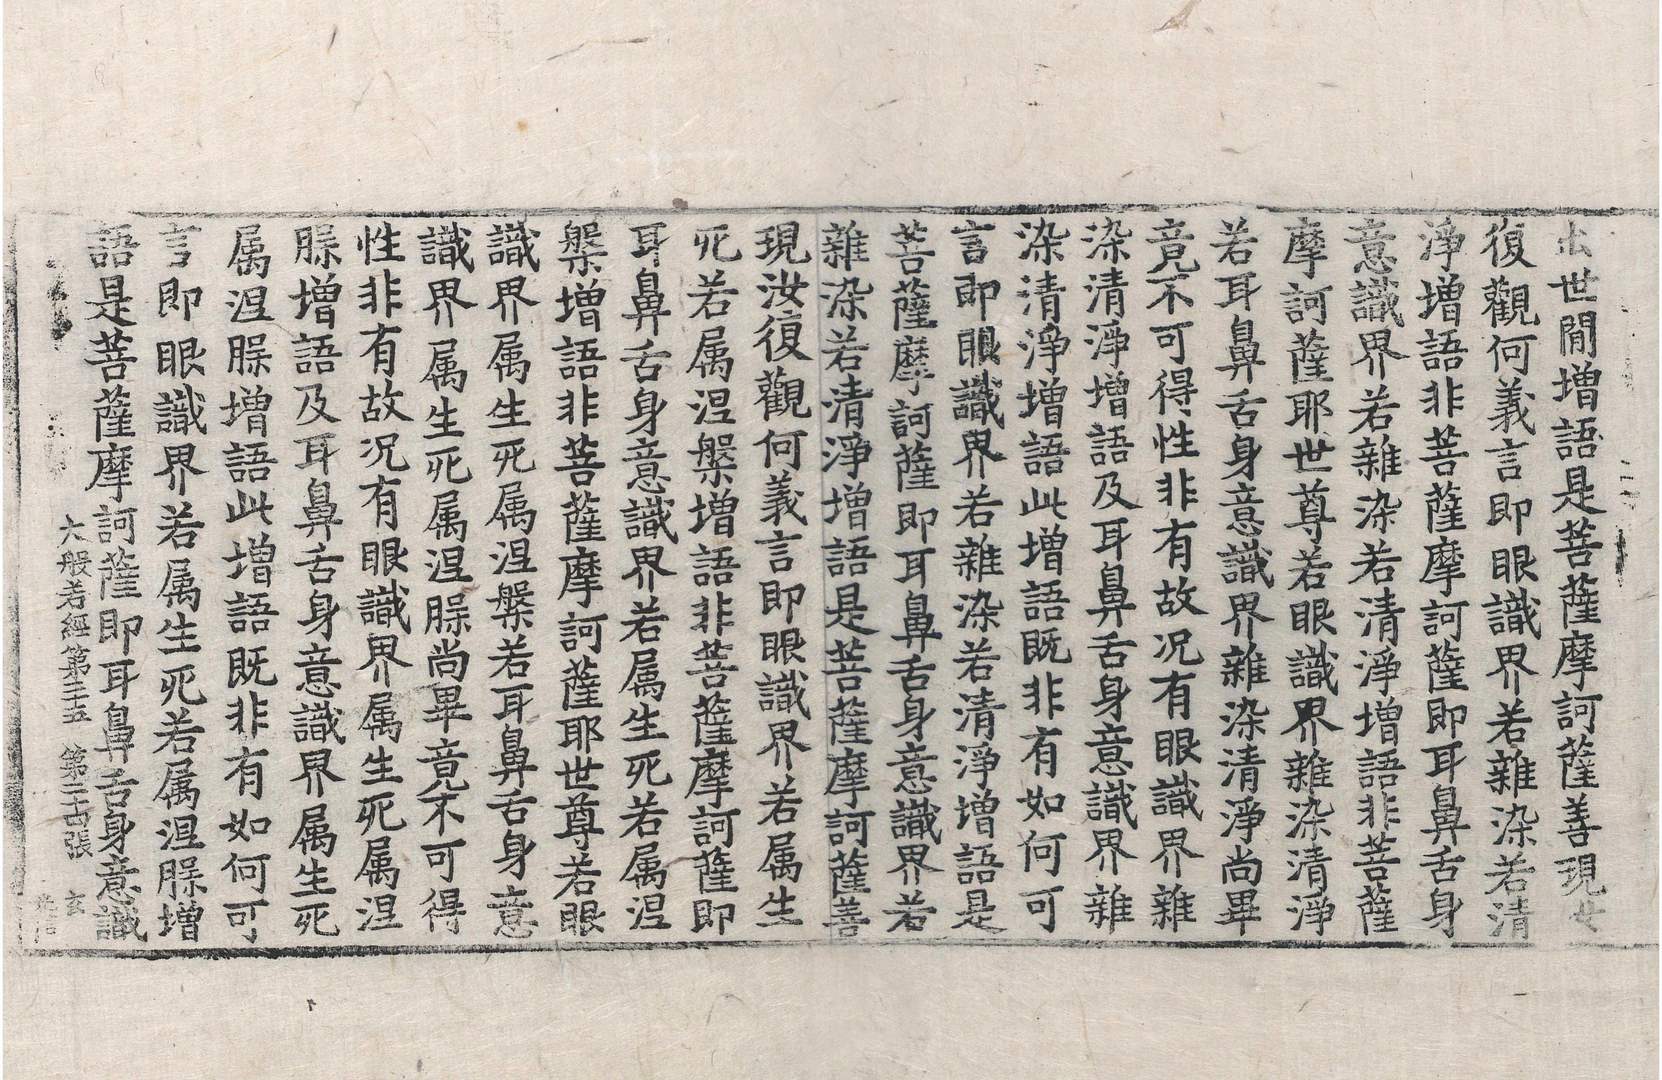 出世間增語是菩薩摩訶薩善現汝
復觀何義言即眼識界若雜染若清
淨增語非菩薩摩訶薩即耳鼻舌身
意識界若雜染若清淨增語非菩薩
摩訶薩耶世尊若眼識界雜染清淨
若耳鼻舌身意識界雜染清淨尚畢
竟不可得性非有故况有眼識界雜
染清淨增語及耳鼻舌身意識界雜
染清淨增語此增語既非有如何可
言即眼識界若雜染若清淨增語是
菩薩摩訶薩即耳鼻舌身意識界若
雜染若清淨增語是菩薩摩訶薩善
現汝復觀何義言即眼識界若属生
死若属涅槃增語非菩薩摩訶薩即
耳鼻舌身意識界若属生死若属涅
槃增語非菩薩摩訶薩耶世尊若眼
識界属生死属涅槃若耳鼻舌身意
識界属生死属涅槃尚畢竟不可得
性非有故况有眼識界属生死属涅
槃增語及耳鼻舌身意識界属生死
属涅槃增語此增語既非有如何可
言即眼識界若属生死若属涅槃增
語是菩薩摩訶薩即耳鼻舌身意識
大般若經第三十五 第二十四張 玄